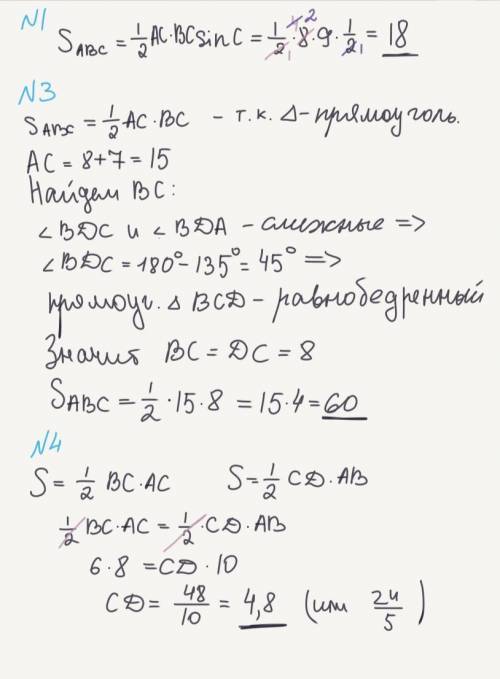 N1
S ABC = 1/2 AC·BC sin C = 1/2 · 8 · 9 · 1/2 = 18
N3
S ABC = 1/2 AC · BC - т.к. Δ-прямоуголь.
AC = 8+7 = 15
Найдем BC:
∠BDC и ∠BDA - смежные =>
∠BDC = 180° - 135° = 45° =>
прямоуг. Δ BCD - равнобедренный
Значит BC = DC = 8
S ABC = 1/2 · 15 · 8 = 15 · 4 = 60
N4
S = 1/2 BC · AC S = 1/2 CD · AB
1/2 BC · AC = 1/2 · CD · AB
6 · 8 = CD · 10
CD = 48/10 = 4,8 (или 24/5)